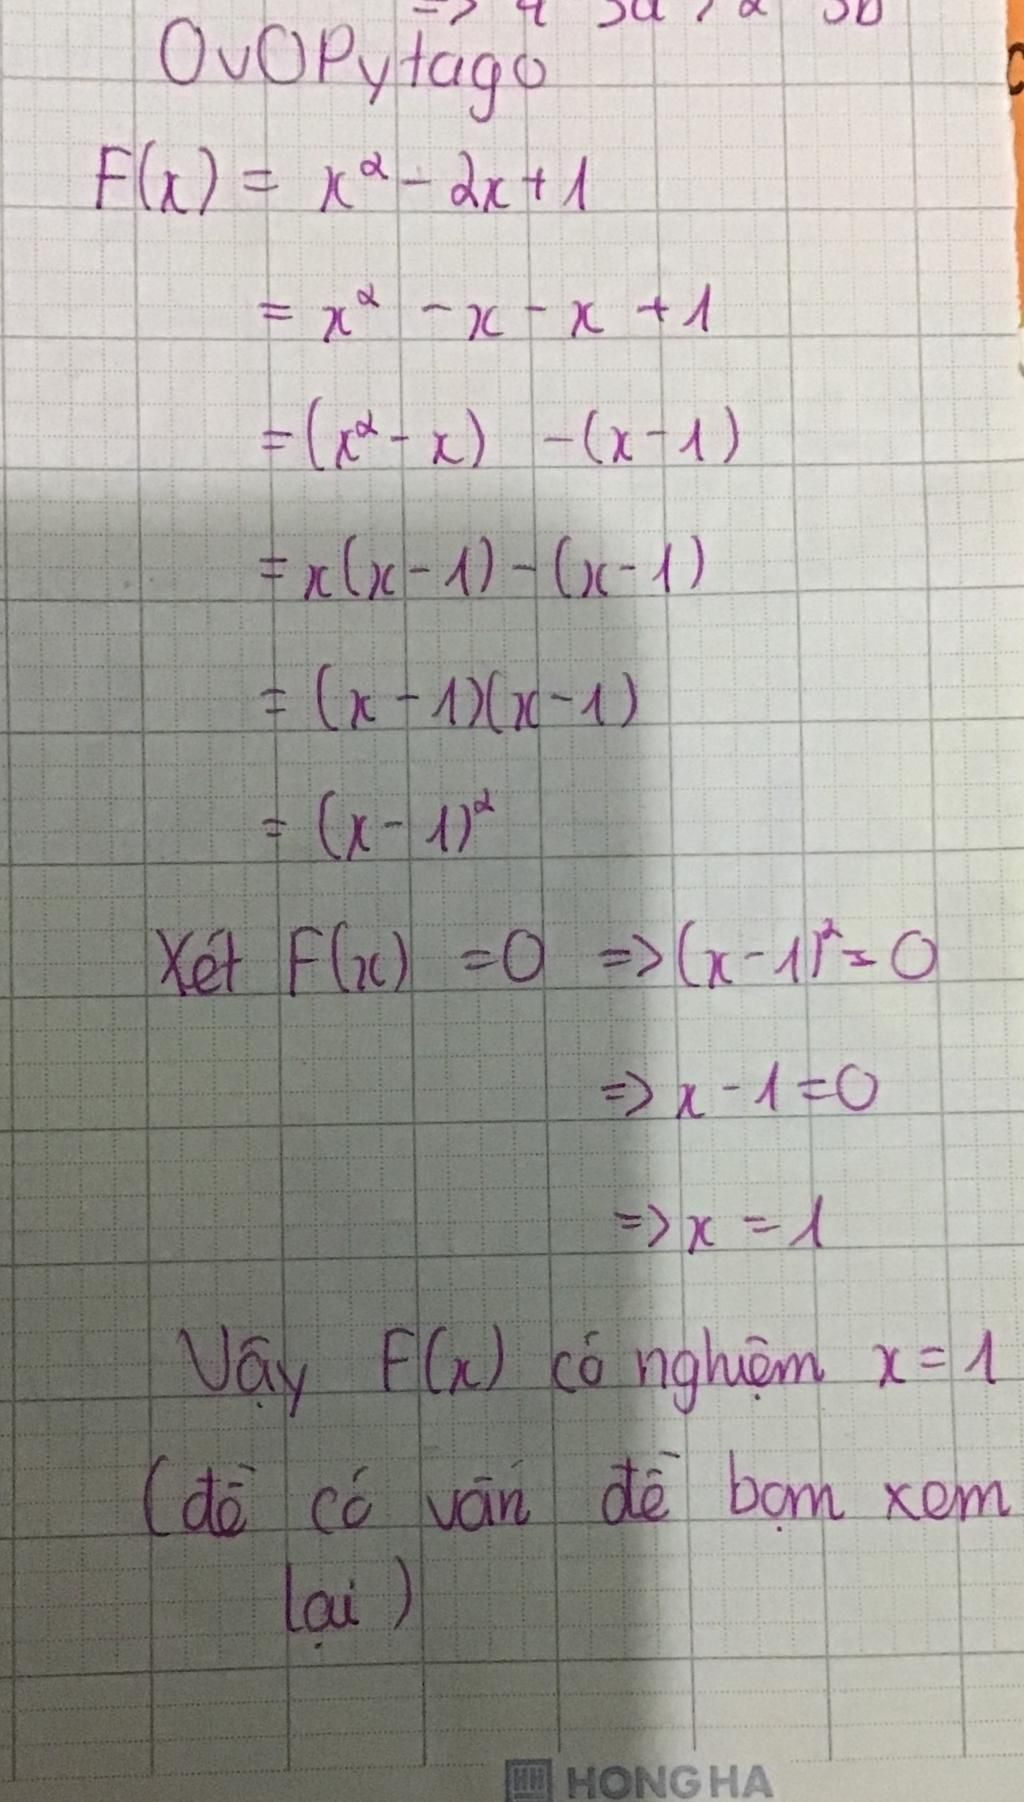 OvOPytago
F(x) = x² - 2x + 1
= x² - x - x + 1
= (x² - x) - (x - 1)
= x(x - 1) - (x - 1)
= (x - 1)(x - 1)
= (x - 1)²
Xét F(x) = 0 => (x - 1)² = 0
=> x - 1 = 0
=> x = 1
Vậy F(x) có nghiệm x = 1
(đề có vấn đề bạn xem
lại)
HONG HA